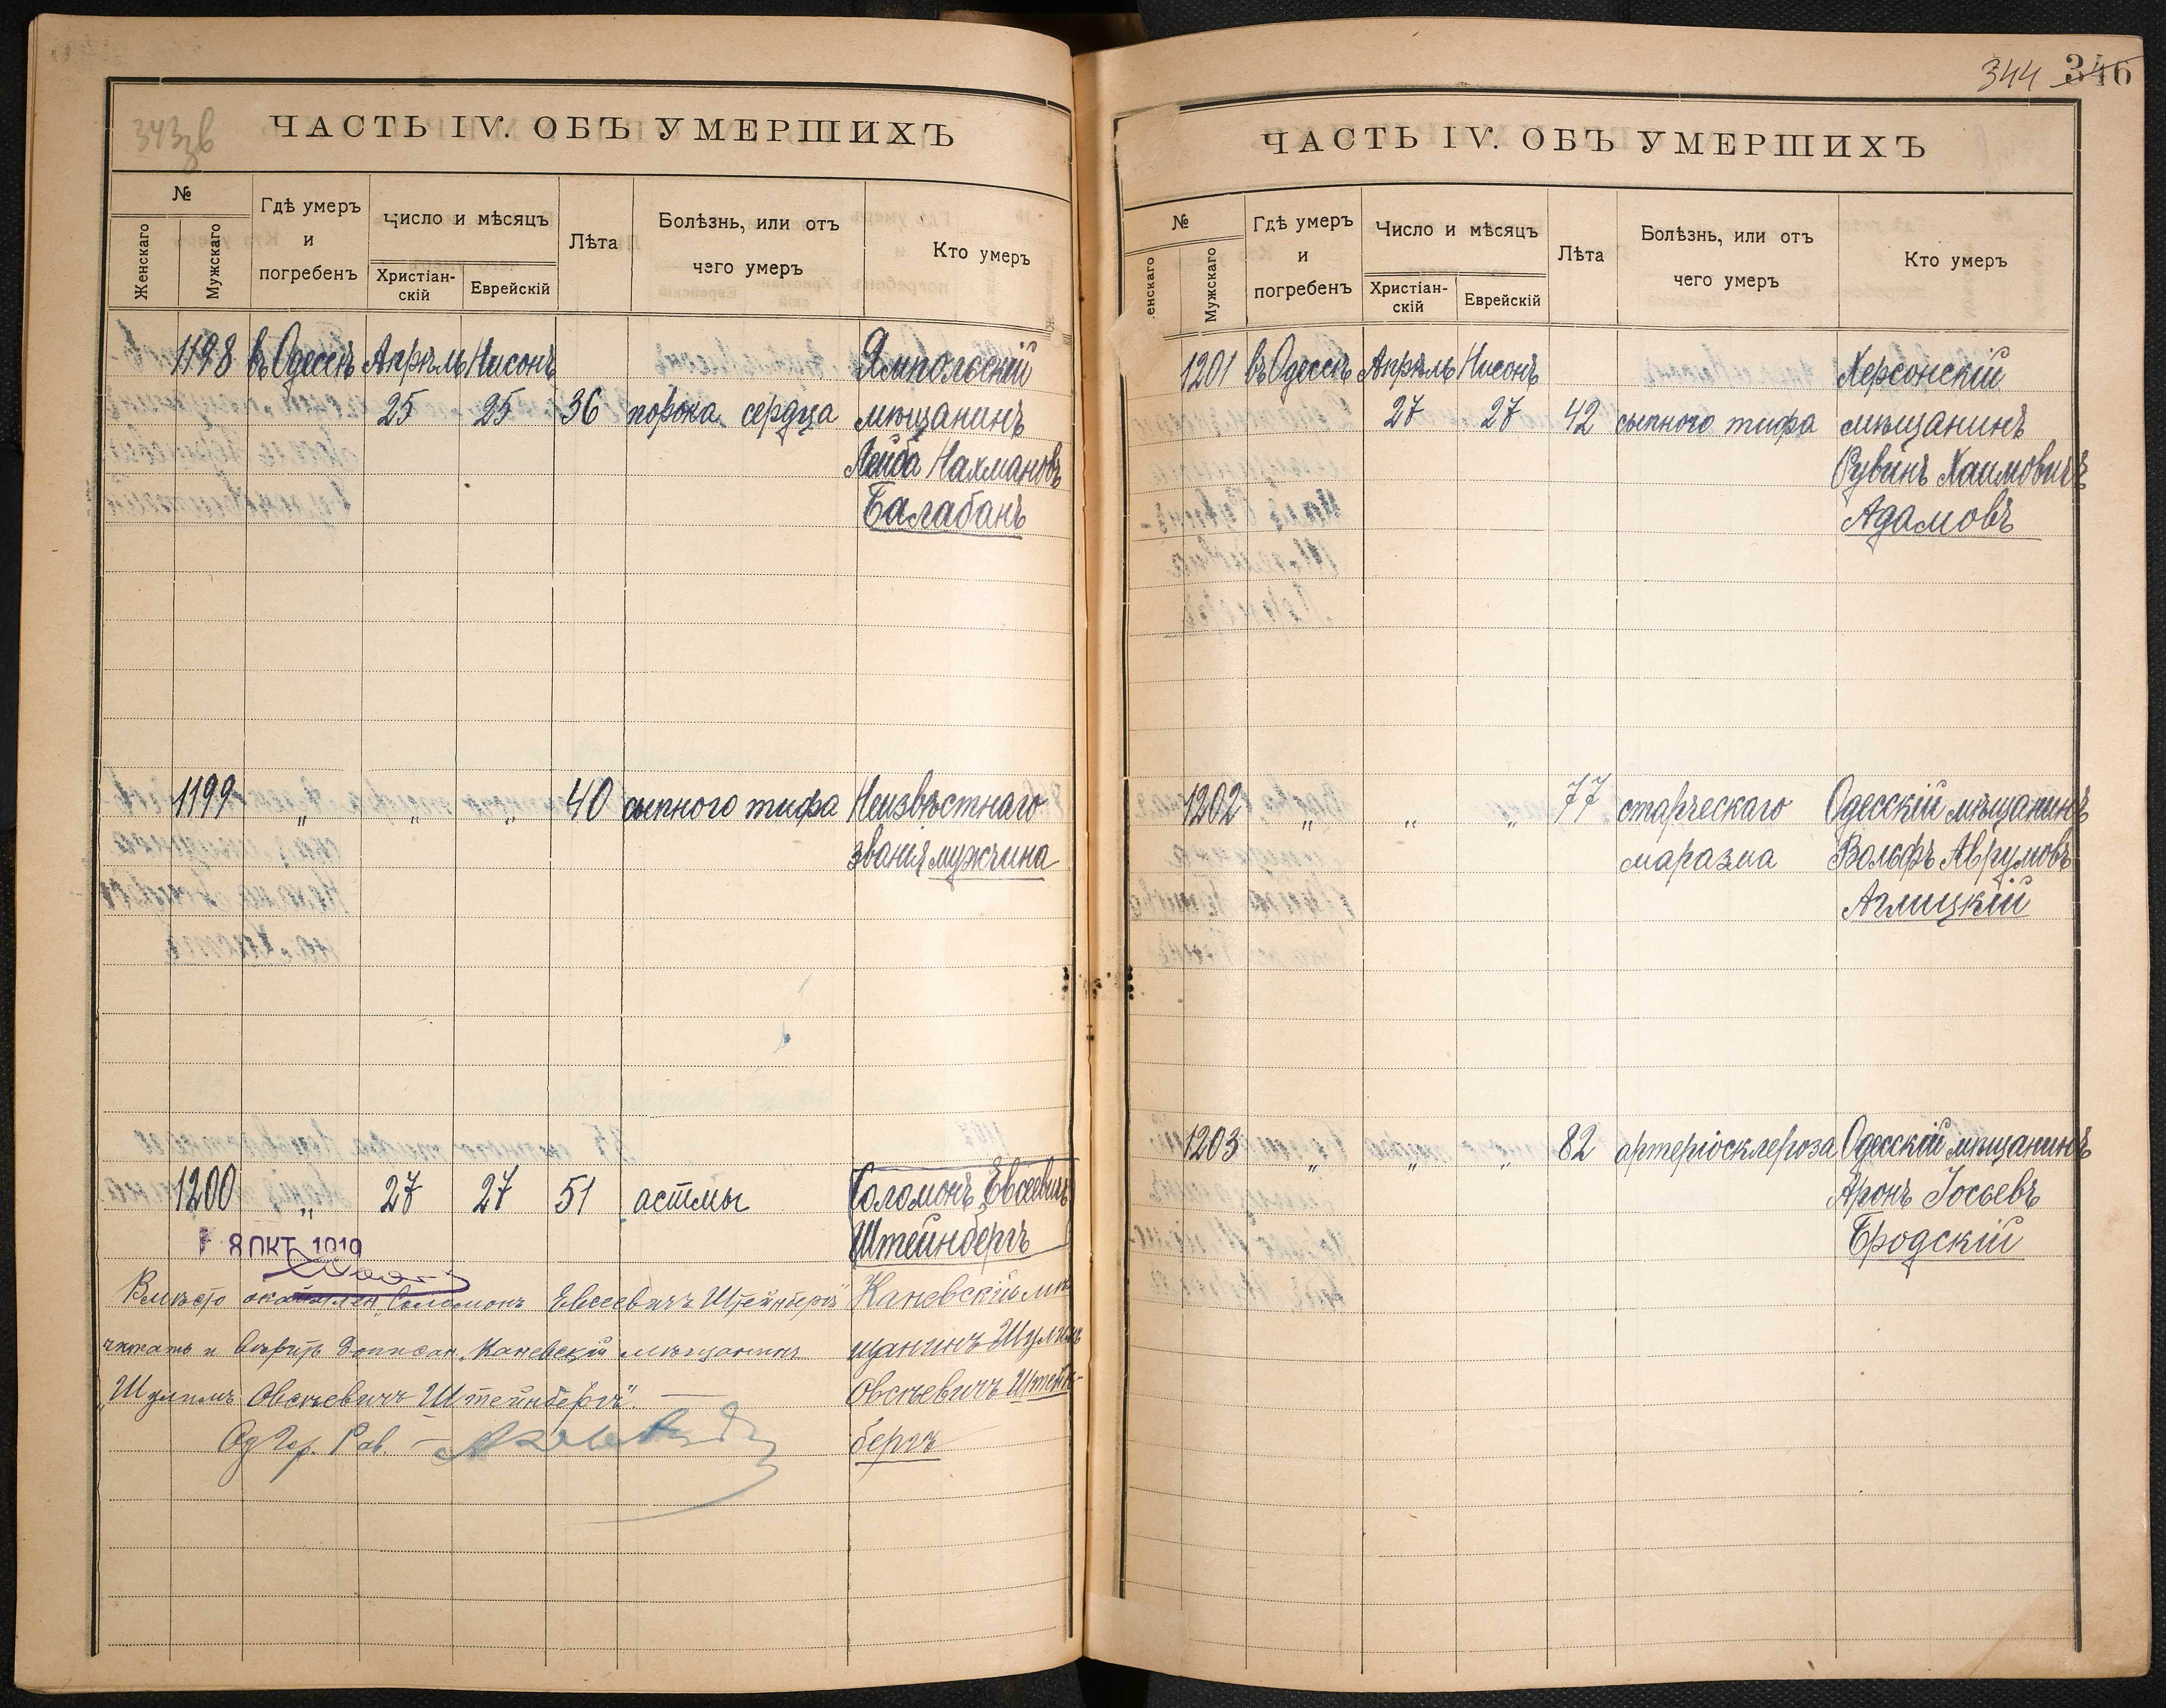 343зв
ЧАСТЬ IV. ОБЪ УМЕРШИХЪ
№
Женскаго
Мужскаго
Гдѣ умеръ
и
погребенъ
Число и мѣсяцъ
Христіан-
скій
Еврейскій
Лѣта
Болѣзнь, или отъ
чего умеръ
Кто умеръ
1198 въ Одессѣ Апрѣль Нисонъ Ямпольскій
25 25 36 порока сердца мѣщанинъ
Лейба Нахмановъ
Балабанъ
1199 „ „ „ 40 сыпного тифа Неизвѣстнаго
званія мужчина
1200 „ 27 27 51 астмы Соломонъ Евсеевичъ
8 ОКТ 1919 Штейнбергъ
Вмѣсто окаймлен „Соломонъ Евсеевичъ Штейнбергъ“ Каневскій мѣ
читать и вѣрить дописан. „Каневскій мѣщанинъ щанинъ Шулимъ
Шулимъ Овсѣевичъ Штейнбергъ“. — Овсѣевичъ Штейн-
Од Гор. Рав. — бергъ
344 346
ЧАСТЬ IV. ОБЪ УМЕРШИХЪ
№
енскаго
Мужскаго
Гдѣ умеръ
и
погребенъ
Число и мѣсяцъ
Христіан-
скій
Еврейскій
Лѣта
Болѣзнь, или отъ
чего умеръ
Кто умеръ
1201 въ Одессѣ Апрѣль Нисонъ Херсонскій
27 27 42 сыпного тифа мѣщанинъ
Рувинъ Хаимовичъ
Адамовъ
1202 „ „ „ 77 старческаго Одесскій мѣщанинъ
маразма Вольфъ Аврумовъ
Аглицкій
1203 „ „ „ 82 артеріосклероза Одесскій мѣщанинъ
Аронъ Іосьевъ
Бродскій